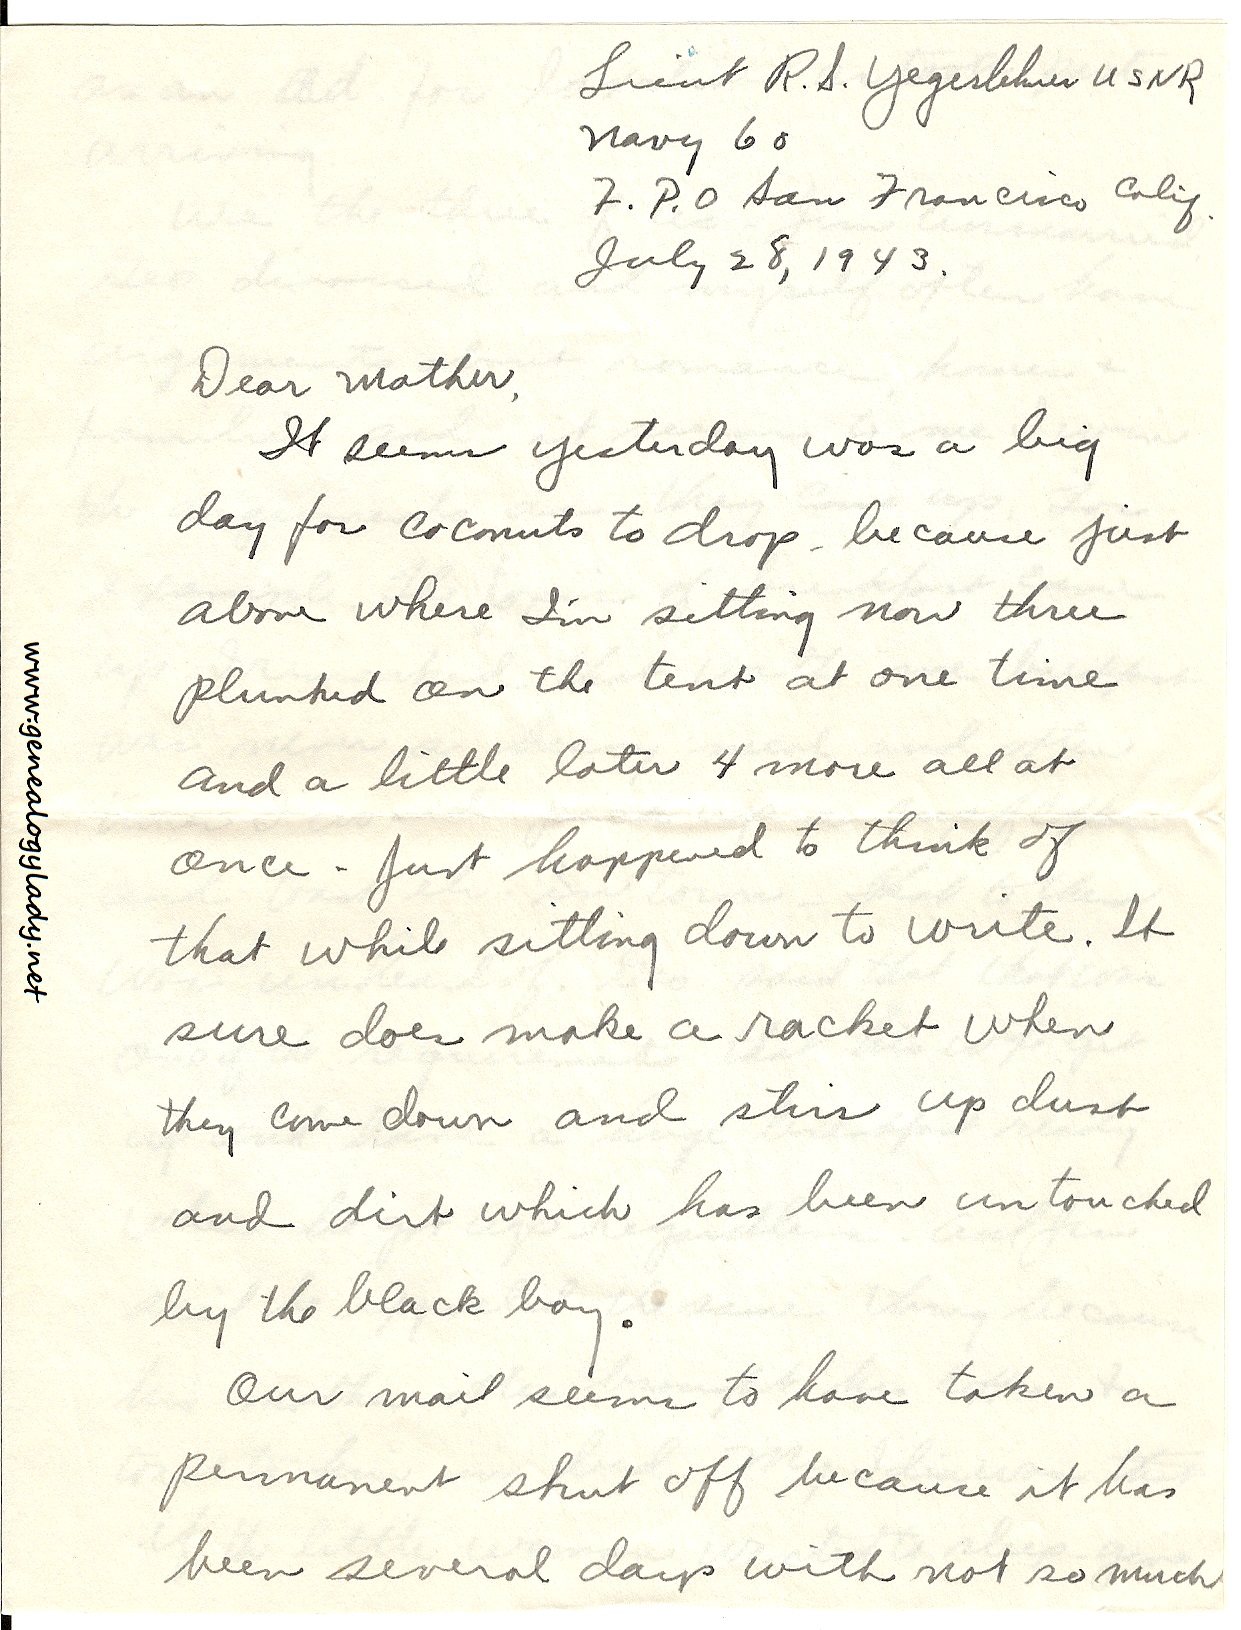 Lieut R.S. Yegerlehner USNR
Navy 60
F.P.O San Francisco Calif.
July 28, 1943.
Dear Mother,
It seems yesterday was a big
day for coconuts to drop - because just
above where I'm sitting now three
plunked on the tent at one time
and a little later 4 more all at
once - Just happened to think of
that while sitting down to write. It
sure does make a racket when
they come down and stirs up dust
and dirt which has been untouched
by the black boy.
Our mail seems to have taken a
permanent shut off because it has
been several days with not so much
www.genealogylady.net